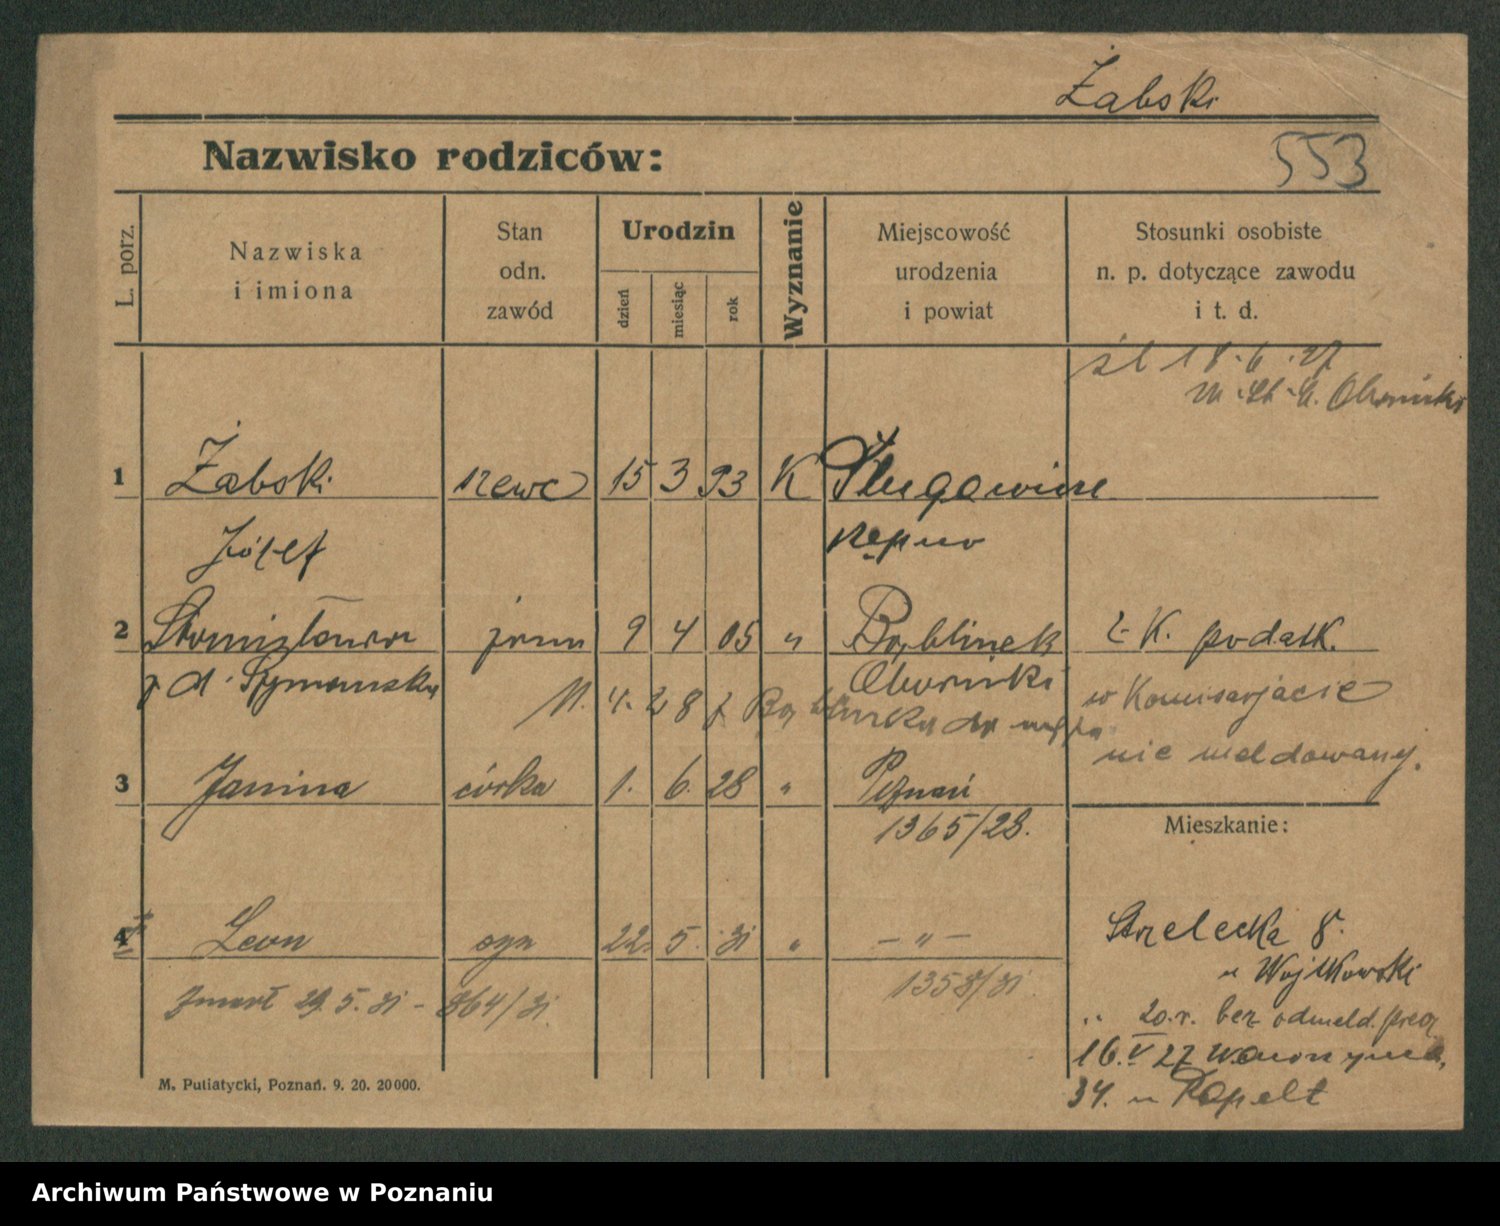 Żabski
Nazwisko rodziców:
553
L. porz.
Nazwiska
i imiona
Stan
odn.
zawód
Urodzin
dzień
miesiąc
rok
Wyznanie
Miejscowość
urodzenia
i powiat
Stosunki osobiste
n. p. dotyczące zawodu
i t. d.
śl 18.6.27
1 Żabski szewc 15 3 93 K
Józef Kępno
2 Stanisława żona 9 4 05 " Bąblinek
z d. Szymańska Oborniki
ż. K. podatk.
w Komisarjacie
nie meldowany.
3 Janina córka 1. 6. 28 " Poznań
1365/28.
Mieszkanie:
4 Leon syn 22. 5. 31 " – " –
Zmarł 29. 5. 31 – 864/31
1358/31
Strzelecka 8.
u Wojtkowski
20.r. bez odmeld.
16. V 27
34. u Rapelt
M. Putiatycki, Poznań. 9. 20. 20000.
Archiwum Państwowe w Poznaniu